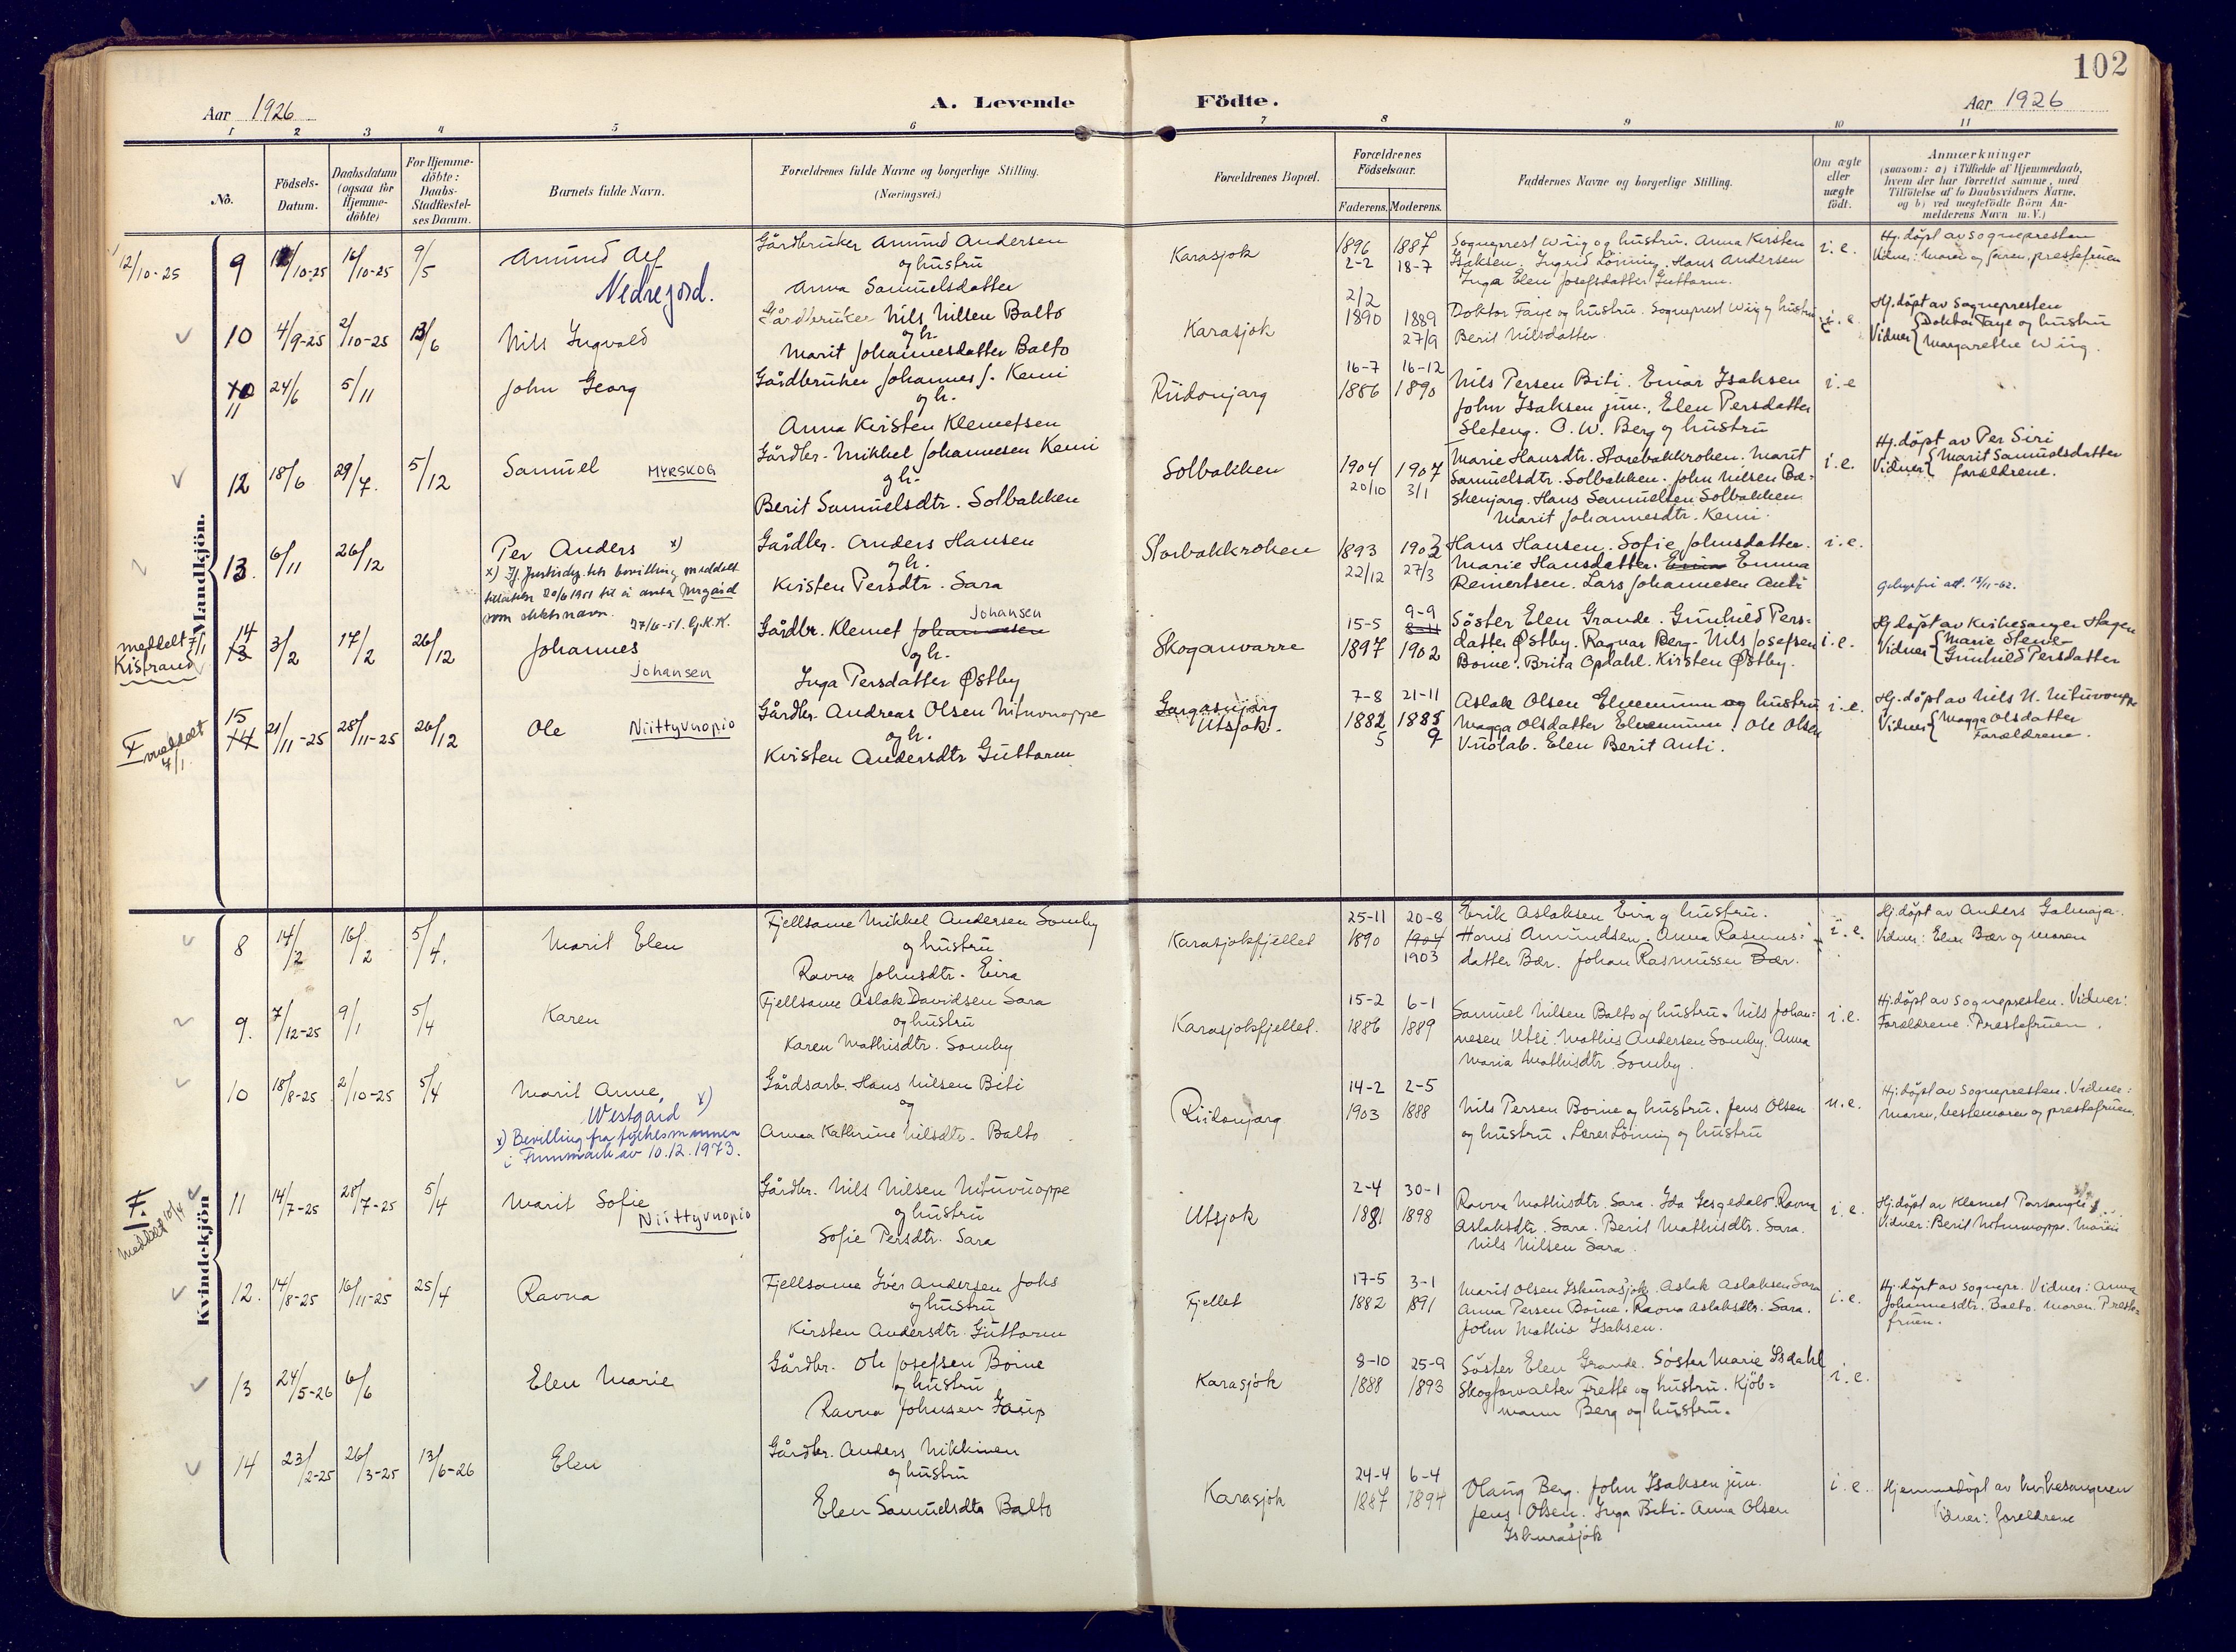 102
Aar 1926
A. Levende Födte.
Aar 1926
1 2 3 4 5 6 7 8 9 10 11
No.
Födsels-
Datum.
Daabsdatum
(ogsaa for
Hjemme-
döbte)
For Hjemme-
döbte:
Daabs-
Stadfæstel-
ses Datum.
Barnets fulde Navn.
Forældrenes fulde Navne og borgerlige Stilling.
(Næringsvei.)
Forældrenes Bopæl.
Forældrenes
Födselsaar.
Faderens. Moderens.
Faddernes Navne og borgerlige Stilling.
Om ægte
eller
uægte
födt.
Anmærkninger
(saasom: a) i Tilfælde af Hjemmedaab,
hvem der har forrettet samme, med
Tilföielse af to Daabsvidners Navne,
og b) ved uægtefödte Börn An-
melderens Navn m.V.)
Mandkjön.
12/10-25
9 12/10-25 16/10-25 9/5
Amund Alf
Nedrejord.
Gårdbruker Amund Andersen
og hustru
Anna Samuelsdatter
Karasjok
1896 1887
2-2 18-7
Sogneprest Wiig og hustru. Anna Kirsten
Isaksen. Ingrid Lönning. Hans Andersen
Inga Elen Josefsdatter Guttorm.
i.e.
Hj. döpt av sognepresten
Vidner: Moren og faren, prestefruen
10 4/9-25 2/10-25 13/6
Nils Ingvald
Gårdbruker Nils Nilsen Balto
og h.
Marit Johannesdatter Balto
Karasjok
2/2
1890 1889
27/9
Doktor Faye og hustru. Sogneprest Wiig og hustru
Berit Nilsdatter.
i.e.
Hj. döpt av sognepresten
Vidner { Doktor Faye og hustru
Margarethe Wiig.
10
11 24/6 5/11
John Georg
Gårdbruker Johannes J. Kemi
og h.
Anna Kirsten Klemetsen
Riidonjarg
16-7 16-12
1886 1890
Nils Persen Biti. Einar Isaksen
John Isaksen jun., Elen Persdatter
Sleteng. O. W. Berg og hustru
i.e
12 18/6 29/7. 5/12
Samuel MYRSKOG
Gårdbr. Mikkel Johannesen Kemi
og h.
Berit Samuelsdtr. Solbakken
Solbakken
1904 1907
20/10 3/1
Marie Hansdtr. Storbakkroken. Marit
Samuelsdtr. Solbakken. John Nilsen Ba-
skenjarg. Hans Samuelsen Solbakken
Marit Johannesdtr. Kemi.
i.e.
Hj. döpt av Per Siri
Vidner { Marit Samuelsdatter
forældrene.
13. 6/11 26/12
Per Anders x)
x) If. Justisdep.tets bevilling meddelt
tillatelse 20/6 1951 til å anta Mrgård
som slektsnavn.
27/6-51. G.K.K.
Gårdbr. Anders Hansen
og h.
Kirsten Persdtr. Sara
Storbakkroken
1893 1902
22/12 27/3
Hans Hansen. Sofie Johnsdatter.
Marie Hansdatter. Emma
Reinertsen. Lars Johannesen Anti
i.e.
Gebyrfri att. 13/11-62.
meddelt 7/1
Kistrand
14
13 3/2 17/2 26/12
Johannes
Johansen
Gårdbr. Klemet Johannesen Johansen
og h.
Inga Persdatter Østby
Skoganvarre
15-5 9-9
8-11
1897 1902
Söster Elen Grande. Gunhild Pers-
datter Østby. Ragnar Berg. Nils Josefsen
Boine. Brita Opdahl. Kirsten Østby.
i.e.
Hj. döpt av kirkesanger Hagen
Vidner { Marie Stene
Gunhild Persdatter
F meddelt
7/1
15
14 21/11-25 28/11-25 26/12
Ole Niittyvuopio
Gårdbr. Andreas Olsen Nituvuoppe
og h.
Kirsten Andersdtr Guttorm
Gargasnjarg
Utsjok.
7-8 21-11
1882 1888
5 9
Aslak Olsen Elvemunn og hustru
Magga Olsdatter Elvemunn. Ole Olsen
Vuolab. Elen Berit Anti.
i.e.
Hj. döpt av Nils N. Nituvuoppe
Vidner { Magga Olsdatter
Forældrene.
Kvindekjön
8 14/2 16/2 5/4.
Marit Elen
Fjellsame Mikkel Andersen Somby
og hustru
Ravna Johnsdtr. Eira
Karasjokfjellet
25-11 20-8
1890 1904
1903
Erik Aslaksen Eira og hustru.
Hans Amundsen. Anna Rasmus-
datter Bær. Johan Rasmussen Bær.
i.e.
Hj. döpt av Anders Galmaja.
Vidner: Elen Bær og moren
9. 7/12-25 9/1 5/4
Karen
Fjellsame Aslak Davidsen Sara
og hustru
Karen Mathisdtr. Somby
Karasjokfjellet.
15-2 6-1
1886 1889
Samuel Nilsen Balto og hustru. Nils Johan-
nesen Utsi. Mathis Andersen Somby. Anna
Maria Mathisdtr. Somby.
i.e.
Hj. döpt av sognepresten. Vidner:
Forældrene. Prestefruen.
10 18/8-25 2/10-25 5/4
Marit Anne,
Westgård x)
x) Bevilling fra fylkesmannen
i Finnmark av 10.12.1973.
Gårdsarb. Hans Nilsen Biti
og
Anna Kathrine Nilsdtr. Balto
Riidonjarg
14-2 2-5
1903 1888
Nils Persen Boine og hustru. Jens Olsen
og hustru. Lærer Lönning og hustru
u.e.
Hj. döpt av sognepresten. Vidner:
moren, bestemoren og prestefruen.
F.
meddelt 10/4
11 14/7-25 28/7-25 5/4
Marit Sofie
Niittyvuopio
Gårdbr. Nils Nilsen Nituvuoppe
og hustru
Sofie Persdtr. Sara
Utsjok
2-4 30-1
1881 1898
Ravna Mathisdtr. Sara. Ida Gesgedalo Ravna
Aslaksdtr. Sara. Berit Mathisdtr. Sara.
Nils Nilsen Sara.
i.e.
Hj. döpt av Klemet Porsanger
Vidner: Berit Nituvuoppe. Moren
12. 14/8-25 16/11-25 25/4
Ravna
Fjellsame Iver Andersen Joks
og hustru
Kirsten Andersdtr. Guttorm
Fjellet
17-5 3-1
1882 1891
Marit Olsen Iskurasjok Aslak Aslaksen Sara
Anna Persen Boine. Ravna Aslaksdtr. Sara.
John Mathis Isaksen.
i.e.
Hj. döpt av sognepr. Vidner: Anna
Johannesdtr. Balto. Moren. Preste-
fruen.
13 24/5-26 6/6
Elen Marie
Gårdbr. Ole Josefsen Boine
og hustru
Ravna Johnsen Gaup
Karasjok
8-10 25-9
1888 1893
Söster Elen Grande. Söster Marie Isdahl
Skogforvalter Frette og hustru. Kjöb-
mann Berg og hustru.
i.e.
14 23/2-25 26/3-25 13/6-26
Elen
Gårdbr. Anders Nikkinen
og hustru
Elen Samuelsdtr Balto
Karasjok
24-4 6-4
1887 1894
Olaug Berg. John Isaksen jun.
Jens Olsen. Inga Biti. Anna Olsen
Iskurasjok
i.e.
Hjemmedöpt av kirkesangeren
Vidner: foreldrene